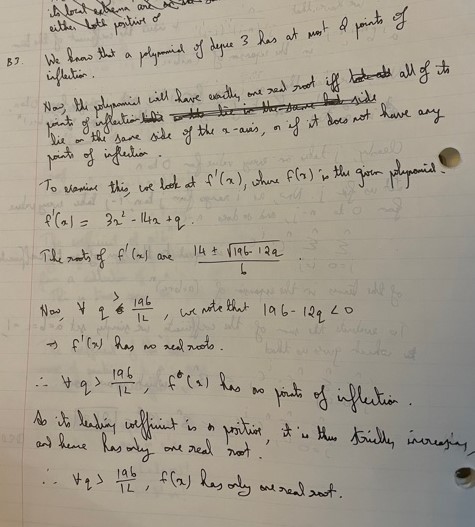 its local extrema are
either both positive or
B3. We know that a polynomial of degree 3 has at most 2 points of
inflection.
Now, the polynomial will have exactly one real root iff all of its
points of inflection lie in the same side
lie on the same side of the x-axis, or if it does not have any
points of inflection.
To examine this, we look at f'(x), where f(x) is the given polynomial.
f'(x) = 3x² - 14x + q.
The roots of f'(x) are 14 ± √196 - 12q / 6 .
Now, ∀ q > 196/12, we note that 196 - 12q < 0
⇒ f'(x) has no real roots.
∴ ∀ q > 196/12, f(x) has no points of inflection.
As its leading coefficient is positive, it is thus strictly increasing,
and hence has only one real root.
∴ ∀ q > 196/12, f(x) has only one real root.